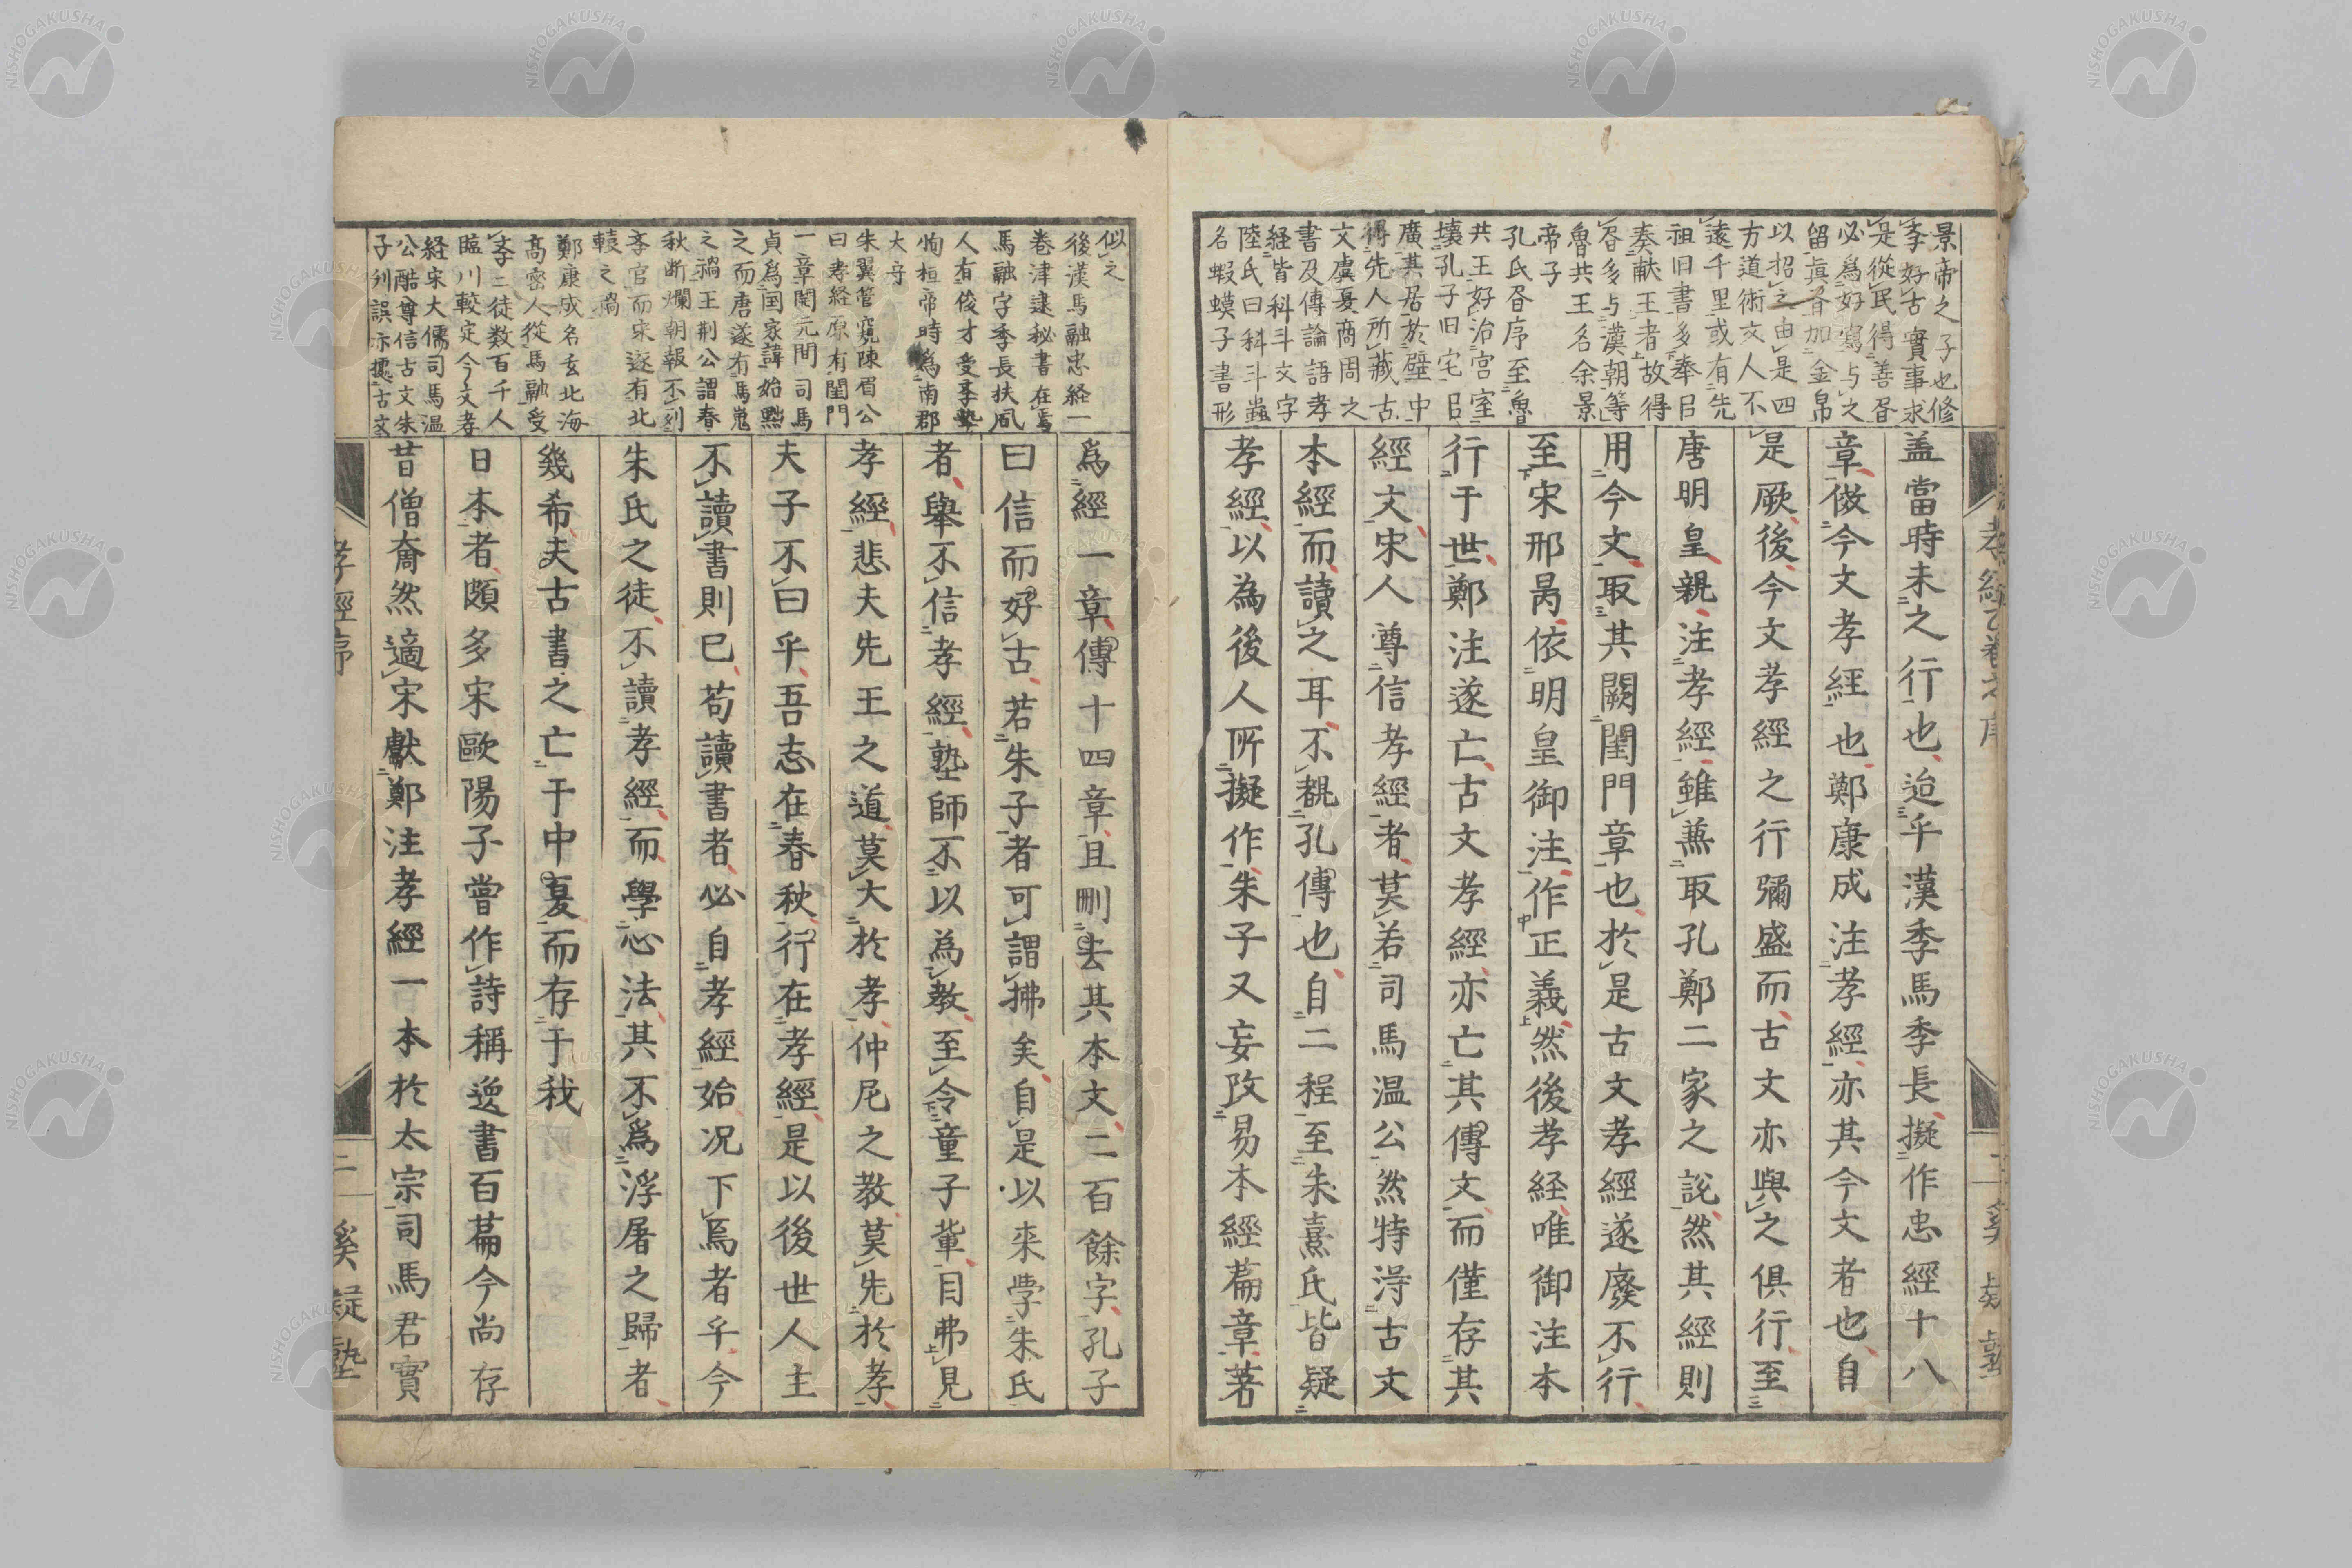 景帝之子也修
孝好古實事求
是從民得善書
必為好寫与之
留眞眘加金帛
以招之由是四
方道術文人不
遠千里或有先
祖旧書多奉㠯
奏献王者故得
書多与漢朝等
魯共王名余景
帝子
孔氏眘序至魯
共王好治宮室
壞孔子旧宅㠯
廣其居於壁中
得先人所藏古
文虞夏商周之
書及傳論語孝
経皆科斗文字
陸氏曰科斗蟲
名蝦蟆子書形
盖當時未之行也迨乎漢季馬季長擬作忠經十八
章倣今文孝經也鄭康成注孝經亦其今文者也自
是厥後今文孝經之行彌盛而古文亦與之俱行至
唐明皇親注孝經雖兼取孔鄭二家之說然其經則
用今文取其闕閨門章也於是古文孝經遂廢不行
至宋邢昺依明皇御注作正義然後孝経唯御注本
行于世鄭注遂亡古文孝經亦亡其傳文而僅存其
經文宋人尊信孝經者莫若司馬温公然特得古文
本經而讀之耳不覩孔傳也自二程至朱熹氏皆疑
孝經以為後人所擬作朱子又妄改易本經篇章著
孝經乙卷之序
二
奚疑塾
似之
後漢馬融忠経一
巻津逮秘書在焉
馬融字季長扶風
人有俊才受李塾
恂桓帝時為南郡
大守
朱翼管窺陳眉公
曰孝経原有閨門
一章開元間司馬
貞為国家諱始黜
之而唐遂有馬嵬
之禍王荊公謂春
秋断爛朝報不列
孝官而宋遂有北
轅之禍
鄭康成名玄北海
高密人從馬融受
孝三徒数百千人
臨川較定今文孝
経宋大儒司馬温
公酷尊信古文朱
子刋誤亦據古文
爲經一章傳十四章且刪去其本文二百餘字孔子
曰信而好古若朱子者可謂拂矣自是以来學朱氏
者舉不信孝經塾師不以為教至令童子輩目弗見
孝經悲夫先王之道莫大於孝仲尼之教莫先於孝
夫子不曰乎吾志在春秋行在孝經是以後世人主
不讀書則已苟讀書者必自孝經始况下焉者乎今
朱氏之徒不讀孝經而學心法其不爲浮屠之歸者
幾希夫古書之亡于中夏而存于我
日本者頗多宋歐陽子嘗作詩稱逸書百篇今尚存
昔僧奝然適宋獻鄭注孝經一本於太宗司馬君實
孝經序
二
奚疑塾
NISHOGAKUSHA